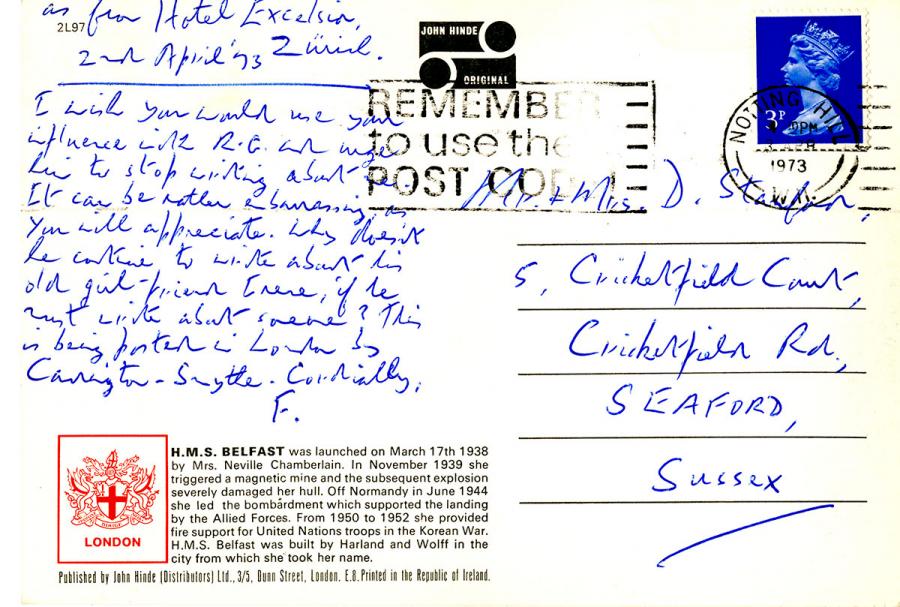 as from Hotel Excelsior,
2L97
2nd April '73 Zürich.
I wish you would use your
influence with R.G. and urge
him to stop writing about me.
It can be rather embarrassing, as
you will appreciate. Why doesn't
he continue to write about his
old girl-friend Irene, if he
must write about someone? This
is being posted in London by
Carrington-Smythe. Cordially,
F.
JOHN HINDE
ORIGINAL
REMEMBER
to use the
POST CODE
NOTTING HILL
PM
1973
W.11.
3P
Mr. & Mrs. D. Stanford,
5, Cricketfield Court,
Cricketfield Rd.,
SEAFORD,
Sussex
H.M.S. BELFAST was launched on March 17th 1938
by Mrs. Neville Chamberlain. In November 1939 she
triggered a magnetic mine and the subsequent explosion
severely damaged her hull. Off Normandy in June 1944
she led the bombardment which supported the landing
by the Allied Forces. From 1950 to 1952 she provided
fire support for United Nations troops in the Korean War.
H.M.S. Belfast was built by Harland and Wolff in the
city from which she took her name.
LONDON
Published by John Hinde (Distributors) Ltd., 3/5, Dunn Street, London. E.8. Printed in the Republic of Ireland.